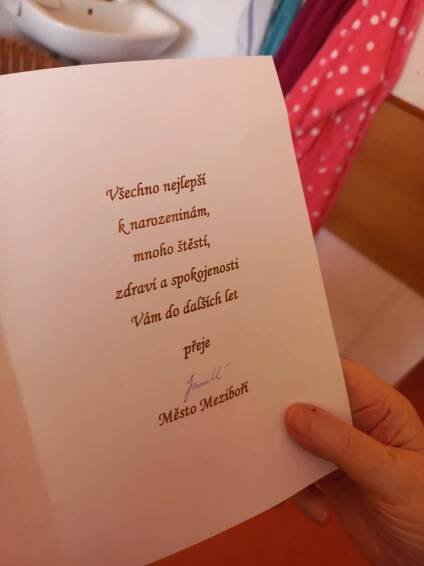 Všechno nejlepší
k narozeninám,
mnoho štěstí,
zdraví a spokojenosti
Vám do dalších let
přeje
Město Meziboří